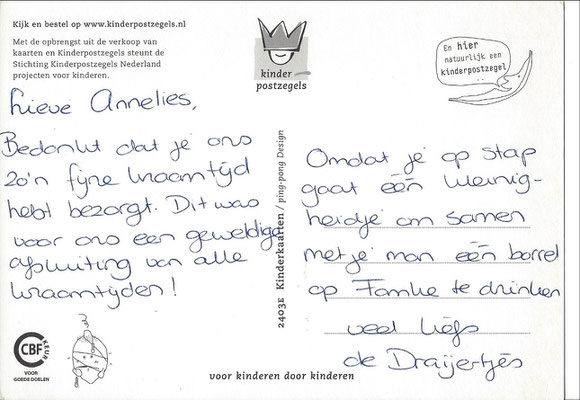 Kijk en bestel op www.kinderpostzegels.nl
Met de opbrengst uit de verkoop van
kaarten en Kinderpostzegels steunt de
Stichting Kinderpostzegels Nederland
projecten voor kinderen.
kinder
postzegels
En hier
natuurlijk een
kinderpostzegel
Lieve Annelies,
Bedankt dat je ons
zo'n fijne kraamtijd
hebt bezorgt. Dit was
voor ons een geweldige
afsluiting van alle
kraamtijden!
2403E Kinderkaarten / ping-pong Design
Omdat je op stap
gaat één kleinig-
heidje om samen
met je man één borrel
op Famke te drinken
veel liefs
de Draijertjes
CBF KEUR
VOOR
GOEDE DOELEN
voor kinderen door kinderen